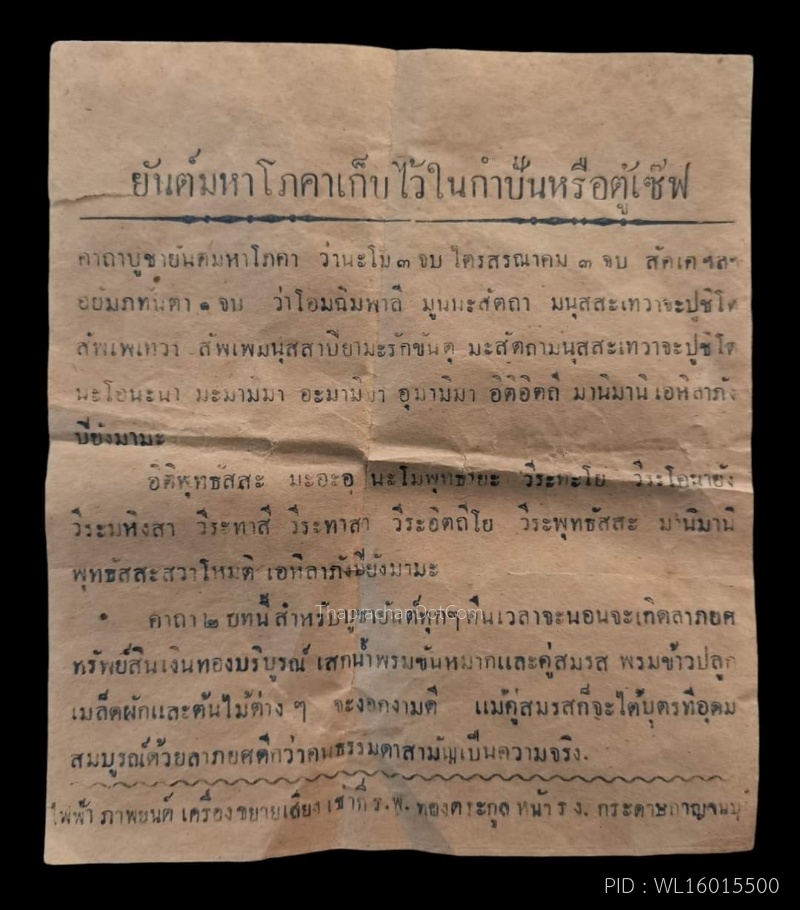 ยันต์มหาโภคาเก็บไว้ในกำปั่นหรือตู้เซ๊ฟ
คาถาบูชายันต์มหาโภคา ว่านะโม ๓ จบ ไตรสรณาคม ๓ จบ สัคเค ฯลฯ
อยัมภทันตา ๑ จบ ว่าโอมฉิมพาลี มูนนะสัตถา มนุสสะเทวาจะปูชิโต
สัพเพเทวา สัพเพมนุสสาปิยามะรักขันตุ มะสัตถามนุสสะเทวาจะปูชิโต
นะโอนะนา มะมามิมา อะมามิมา อุมามิมา อิติอิตถี มานิมานิ เอหิลาภัง
ปิยังมามะ
อิติพุทธัสสะ มะอะอุ นะโมพุทธายะ วีระทะโย วีระโคนายัง
วีระมหิงสา วีระทาสี วีระทาสา วีระอิตถีโย วีระพุทธัสสะ มานิมานิ
พุทธัสสะสวาโหมติ เอหิลาภังปิยังมามะ
• คาถา ๒ บทนี้ สำหรับบูชายันต์ทุกๆคืนเวลาจะนอนจะเกิดลาภยศ
ทรัพย์สินเงินทองบริบูรณ์ เสกน้ำพรมขันหมากและคู่สมรส พรมข้าวปลูก
เมล็ดผักและต้นไม้ต่าง ๆ จะงอกงามดี แม้คู่สมรสก็จะได้บุตรที่อุดม
สมบูรณ์ด้วยลาภยศดีกว่าคนธรรมดาสามัญเป็นความจริง.
ไฟฟ้า ภาพยนต์ เครื่องขยายเสียง เช่าที่ ร.พ. ทองตระกูล หน้า ร ง. กระดาษกาญจนบุ
ThaprachanDotCom
PID : WL16015500